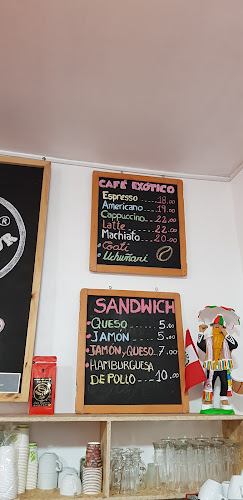 CAFÉ EXÓTICO
Espresso.....18.00
Americano....19.00
Cappuccino....22.00
Latte.......22.00
Machiato....20.00
Coati
Uchuñari
SANDWICH
QUESO....5.00
JAMÓN....5.00
JAMÓN Y QUESO..7.00
HAMBURGUESA
DE POLLO....10.00